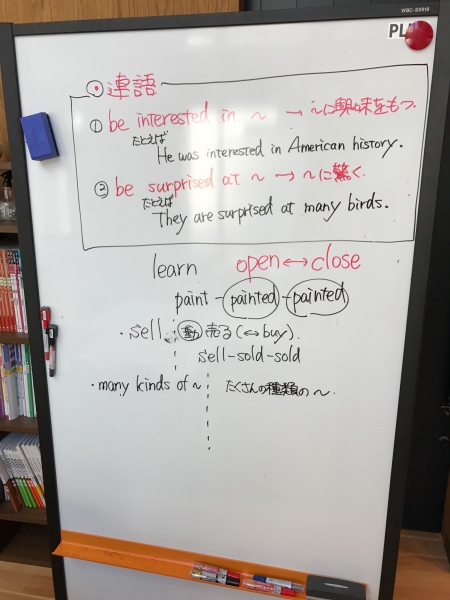 WBC-SX918
PL
・連語
① be interested in ～ → ～に興味をもつ.
たとえば
He was interested in American history.
② be surprised at ～ → ～に驚く.
たとえば
They are surprised at many birds.
learn open ↔ close
paint - painted - painted
・sell 動 売る (↔ buy).
sell-sold-sold
・many kinds of ～ たくさんの種類の～.